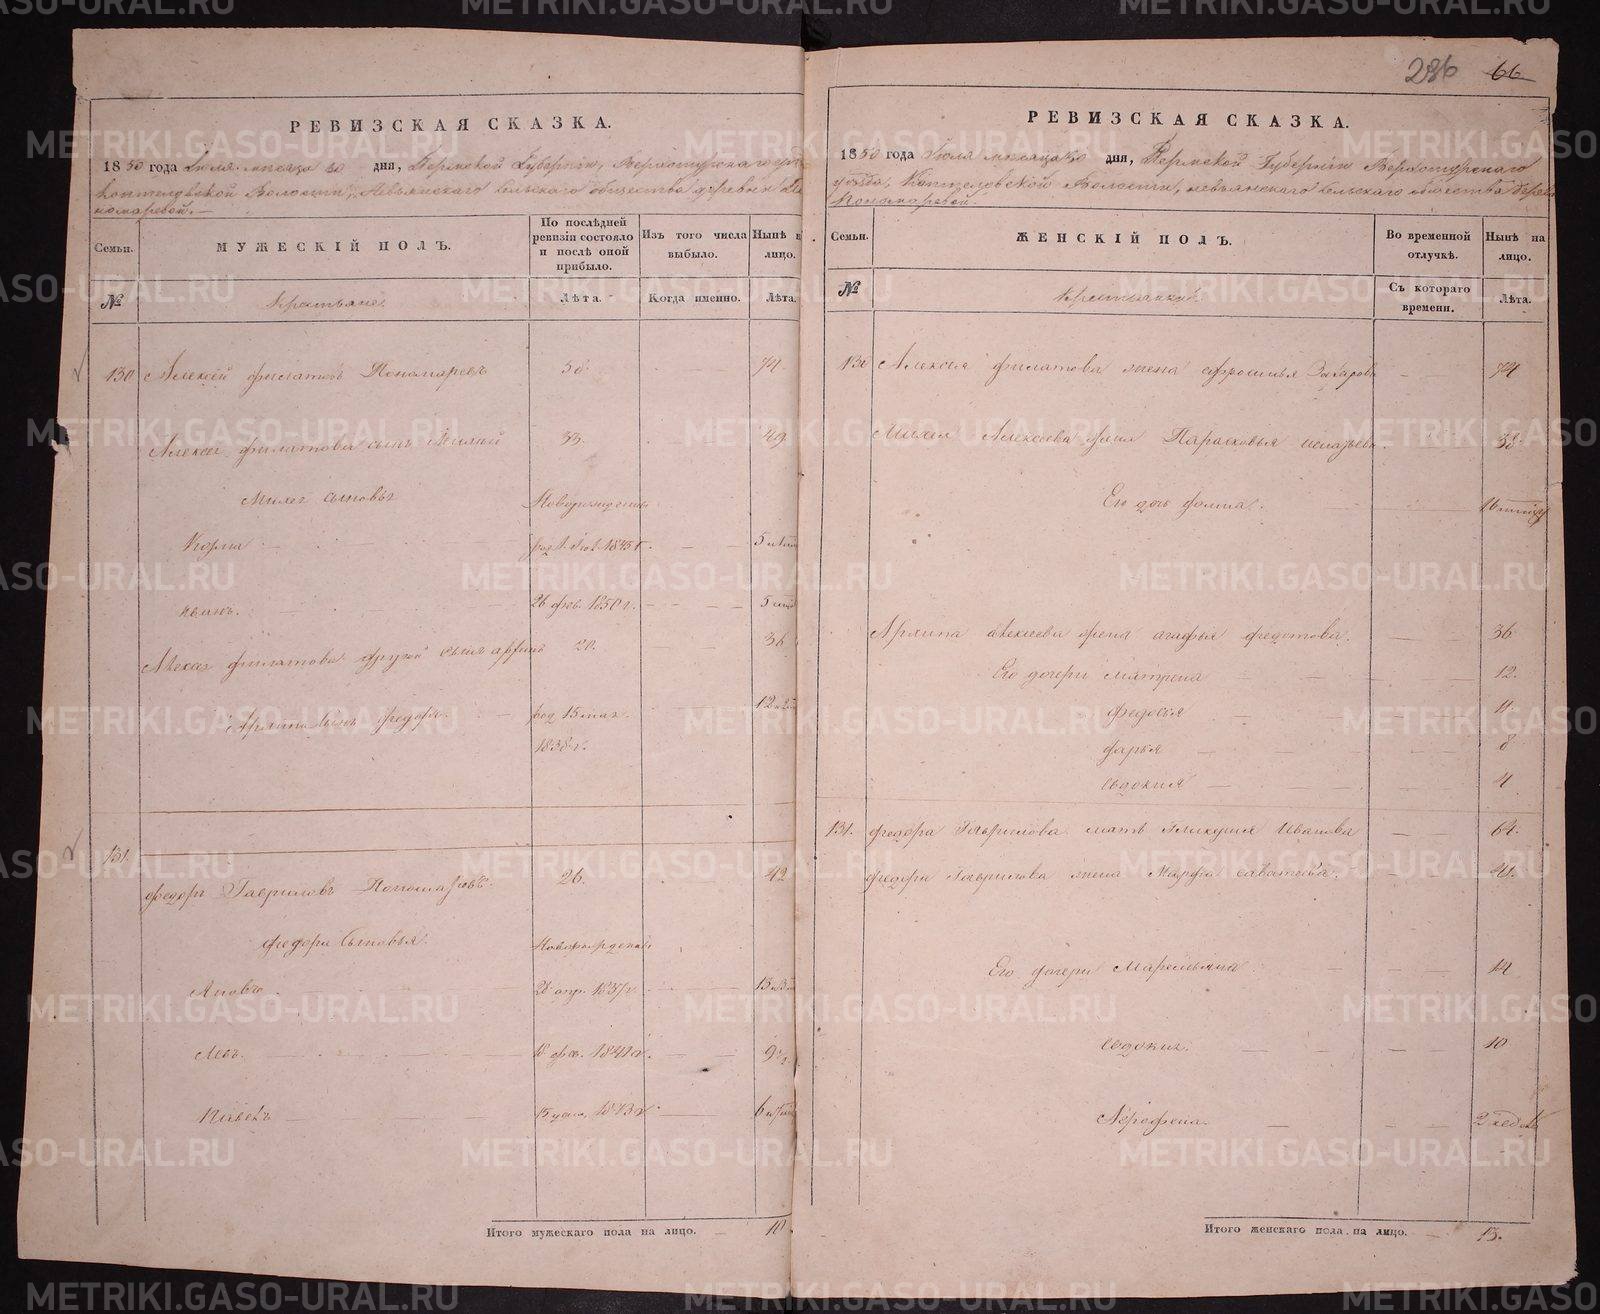 286 66
РЕВИЗСКАЯ СКАЗКА.
1850 года Іюля месяца 30 дня, Пермской Губерніи, Верхотурскаго
Коптеловской Волости, Невьянскаго сельскаго общества деревни По
номаревой.
Семьи. МУЖЕСКІЙ ПОЛЪ. По послѣдней ревизіи состояло и послѣ оной прибыло. Изъ того числа выбыло. Нынѣ на лицо.
№ Крестьяне. Лѣта. Когда именно. Лѣта.
130 Алексѣй Филатовъ Пономаревъ 58 74
Алексея Филатова сынъ Михей 33. 49
Михея сыновья Новорожденные
Козма 1845 г. 5
Иванъ. 26 фев. 1850 г. 5
Алексея Филатова другой сынъ Архипъ 20. 36
Архипа сынъ Федоръ. род. 15 мая 12
1838 г.
131.
Федоръ Гавриловъ Пономаревъ. 26. 42
Федора Сыновья Новорожденные
Яковъ 1837 г. 13
Левъ. 18 фев. 1841 г. 9
15 1843 г. 6
Итого мужескаго пола на лицо. 10.
РЕВИЗСКАЯ СКАЗКА.
1850 года Іюля месяца 30 дня, Пермской Губерніи Верхотурскаго
уѣзда, Коптеловской Волости, Невьянскаго сельскаго общества дерев
Пономаревой.
Семьи. ЖЕНСКІЙ ПОЛЪ. Во временной отлучкѣ. Нынѣ на лицо.
№ Крестьянки. Съ котораго времени. Лѣта.
130 Алексея Филатова жена Ефросинья Захарова 74
Михея Алексеева жена Парасковья 38
Его дочь 16
Архипа Алексеева жена Агафья Федотова. 36
Его дочери Матрена 12.
Федосья 11
Дарья 8
Евдокия 4
131. Федора Гаврилова мать Гликерия Иванова 64.
Федора Гаврилова жена Марфа Саватеева. 41.
Его дочери Маремьяна 14
Евдокия. 10
2
Итого женскаго пола на лицо. 13.
METRIKI.GASO-URAL.RU